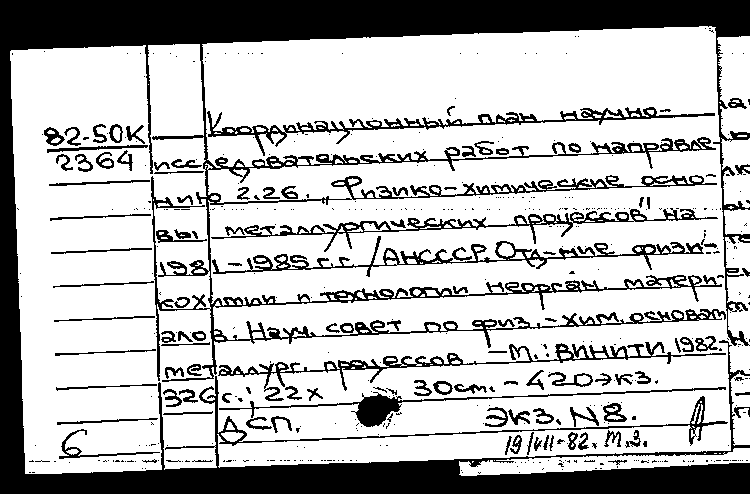 82-50К
2364
Координационный план научно-
исследовательских работ по направле-
нию 2.26. „Физико-химические осно-
вы металлургических процессов" на
1981-1985 г.г. /АНСССР. Отд-ние физи-
кохимии и технологии неорган. матери-
алов. Науч. совет по физ.-хим. основам
металлург. процессов. - М.: ВИНИТИ, 1982.-
326 с.; 22 х 30 см. - 420 экз.
ДСП. ЭКЗ. N8.
6 19/VII-82. М.З.